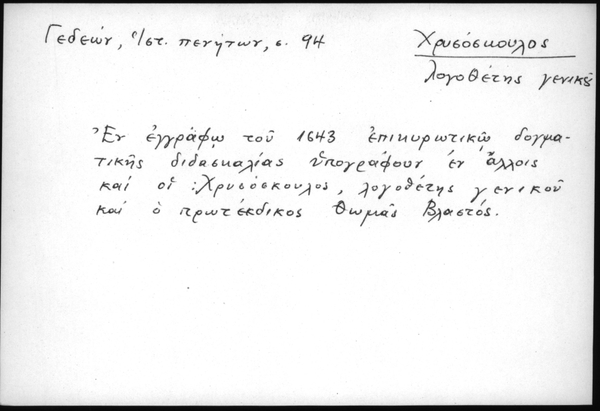 Γεδεών, Ἱστ. πενήτων, σ. 94
Χρυσόσκουλος
λογοθέτης γενικοῦ
Ἐν ἐγγράφῳ τοῦ 1643 ἐπικυρωτικῷ δογμα-
τικῆς διδασκαλίας ὑπογράφουν ἐν ἄλλοις
καί οἱ : Χρυσόσκουλος, λογοθέτης γενικοῦ
καί ὁ πρωτέκδικος Θωμᾶς Βλαστός.